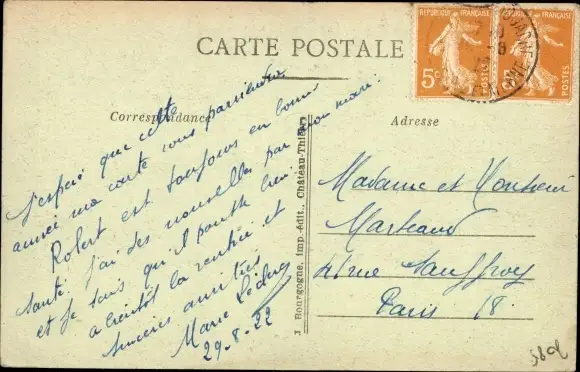 CARTE POSTALE
RÉPUBLIQUE FRANÇAISE
5c
POSTES
RÉPUBLIQUE FRANÇAISE
POSTES
Correspondance
Adresse
J'espère que cette
année ma carte vous parviendra
Robert est toujours en bonne
santé. J'ai des nouvelles par mon mari.
et je sais qu'il
a bientôt la rentrée et
sincères amitiés
Marie
29-8-22
J. Bourgogne, imp.-édit., Château-Thierry
Madame et Monsieur
Marteaud
rue Sauffroy
Paris 18